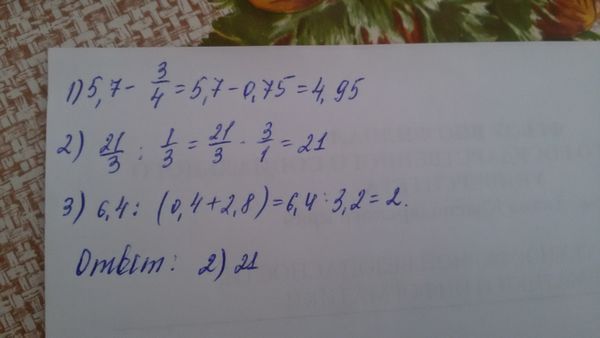 1) 5,7 - 3/4 = 5,7 - 0,75 = 4,95
2) 21/3 : 1/3 = 21/3 · 3/1 = 21
3) 6,4 : (0,4 + 2,8) = 6,4 : 3,2 = 2.
Ответ: 2) 21